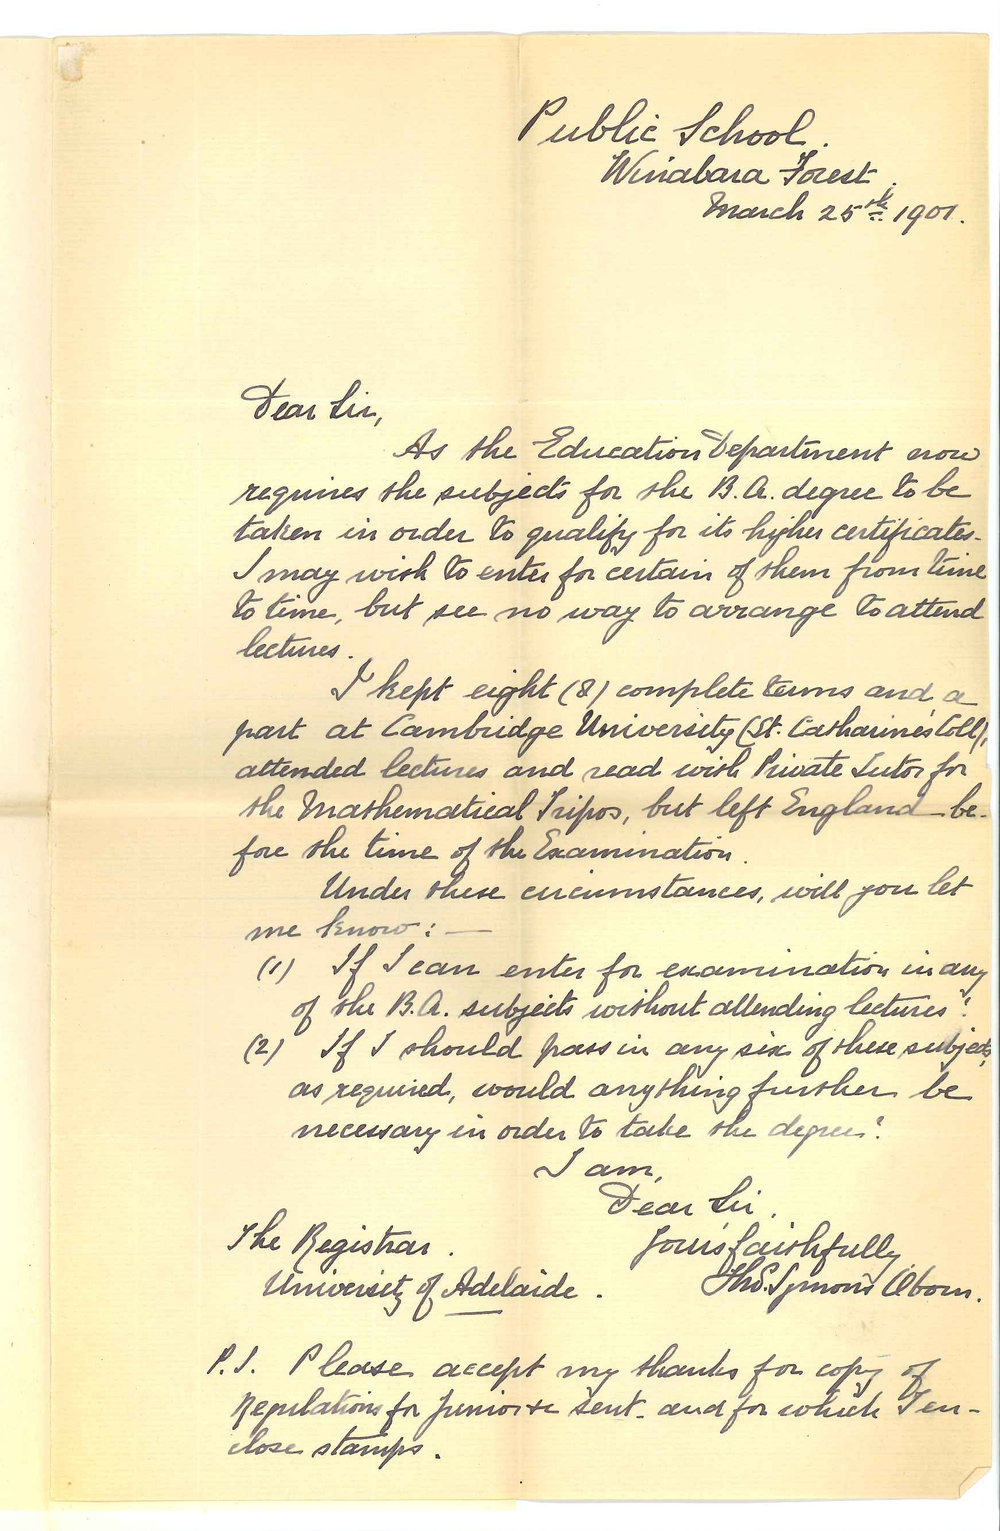 Public School.
Wirrabara Forest.
March 25th. 1901.
Dear Sir,
As the Education Department now
requires the subjects for the B.A. degree to be
taken in order to qualify for its higher certificates -
I may wish to enter for certain of them from time
to time, but see no way to arrange to attend
lectures.
I kept eight (8) complete terms and a
part at Cambridge University (St. Catharine's Coll),
attended lectures and read with Private Tutor for
the Mathematical Tripos, but left England be-
fore the time of the Examination.
Under these circumstances, will you let
me know: —
(1) If I can enter for examination in any
of the B.A. subjects without attending lectures?
(2) If I should pass in any six of these subjects,
as required, would anything further be
necessary in order to take the degree?
I am,
Dear Sir.
Yours faithfully
The Registrar.
Thos. Symons Oborn.
University of Adelaide.
P.S. Please accept my thanks for copy of
Regulations for Junior &c sent - and for which I en-
close stamps.